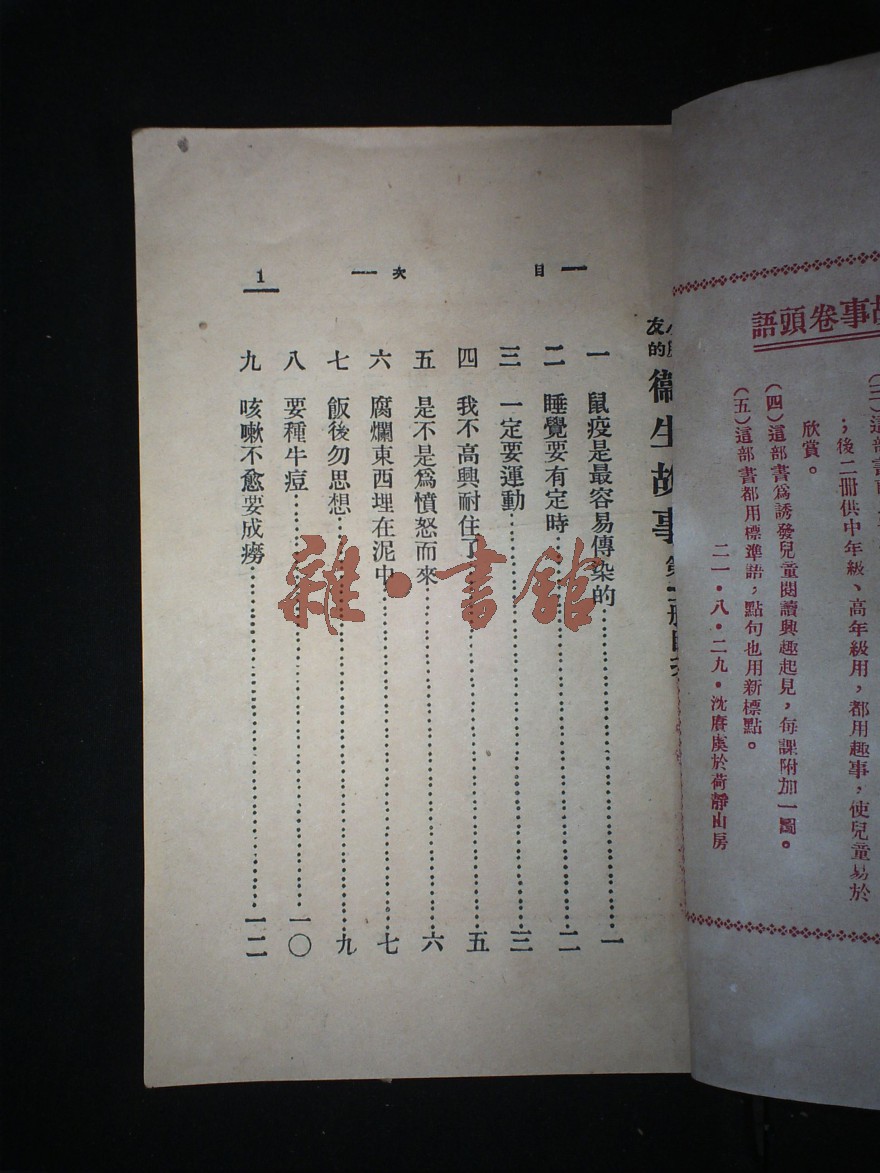 故事卷頭語
；後二冊供中年級、高年級用，都用趣事，使兒童易於
欣賞。
（四）這部書爲誘發兒童閱讀興趣起見，每課附加一圖。
（五）這部書都用標準語；點句也用新標點。
二一・八・二九・沈賡虞於荷靜山房
目次
1
友的 衞生故事 第
一 鼠疫是最容易傳染的…………一
二 睡覺要有定時…………二
三 一定要運動…………三
四 我不高興耐住了…………五
五 是不是爲憤怒而來…………六
六 腐爛東西埋在泥中…………七
七 飯後勿思想…………九
八 要種牛痘…………一〇
九 咳嗽不愈要成癆…………一二
雜・書館